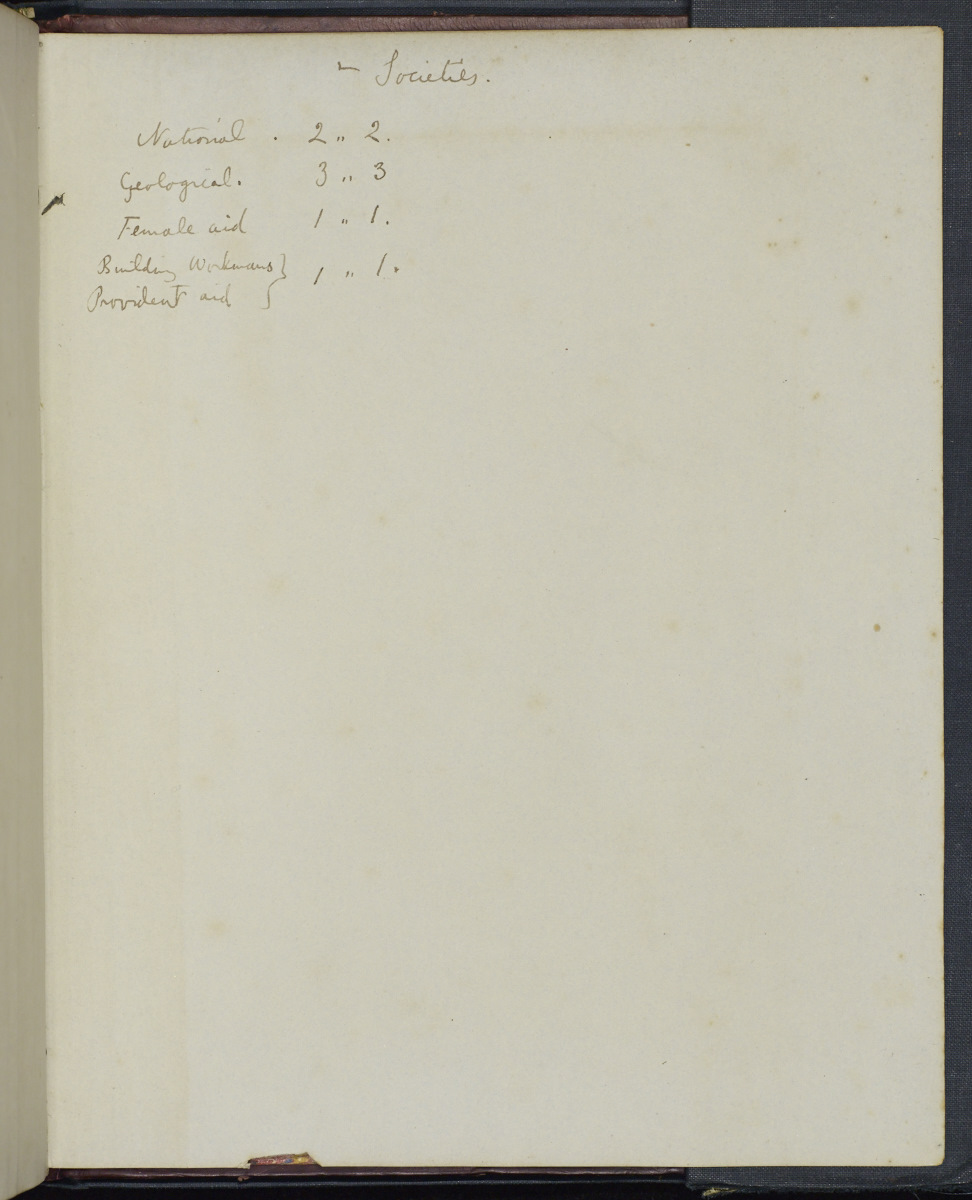 ~ Societies.
National . 2 „ 2.
Geological. 3 „ 3
Female aid 1 „ 1.
Building Workmans }
Provident aid } 1 „ 1.